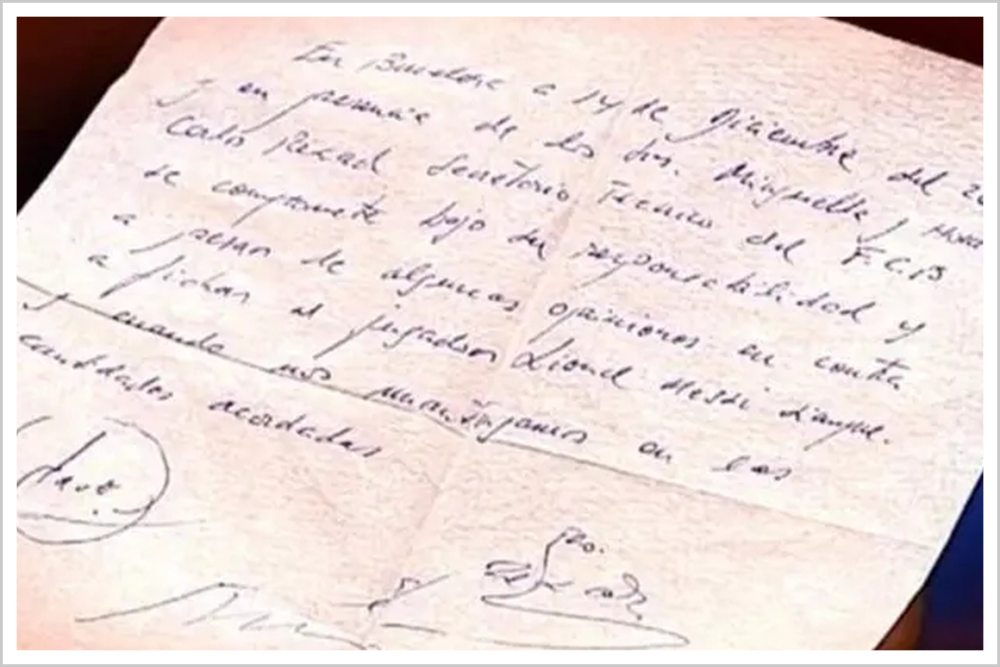 En Barcelona a 14 de Diciembre del 20
y en presencia de los Srs. Minguella y Hora
Carlos Rexach Secretario Tecnico del F.C.B
se compromete bajo su responsabilidad y
a pesar de algunas opiniones en contra
a fichar al jugador Lionel Messi siempre
y cuando nos mantengamos en las
cantidades acordadas